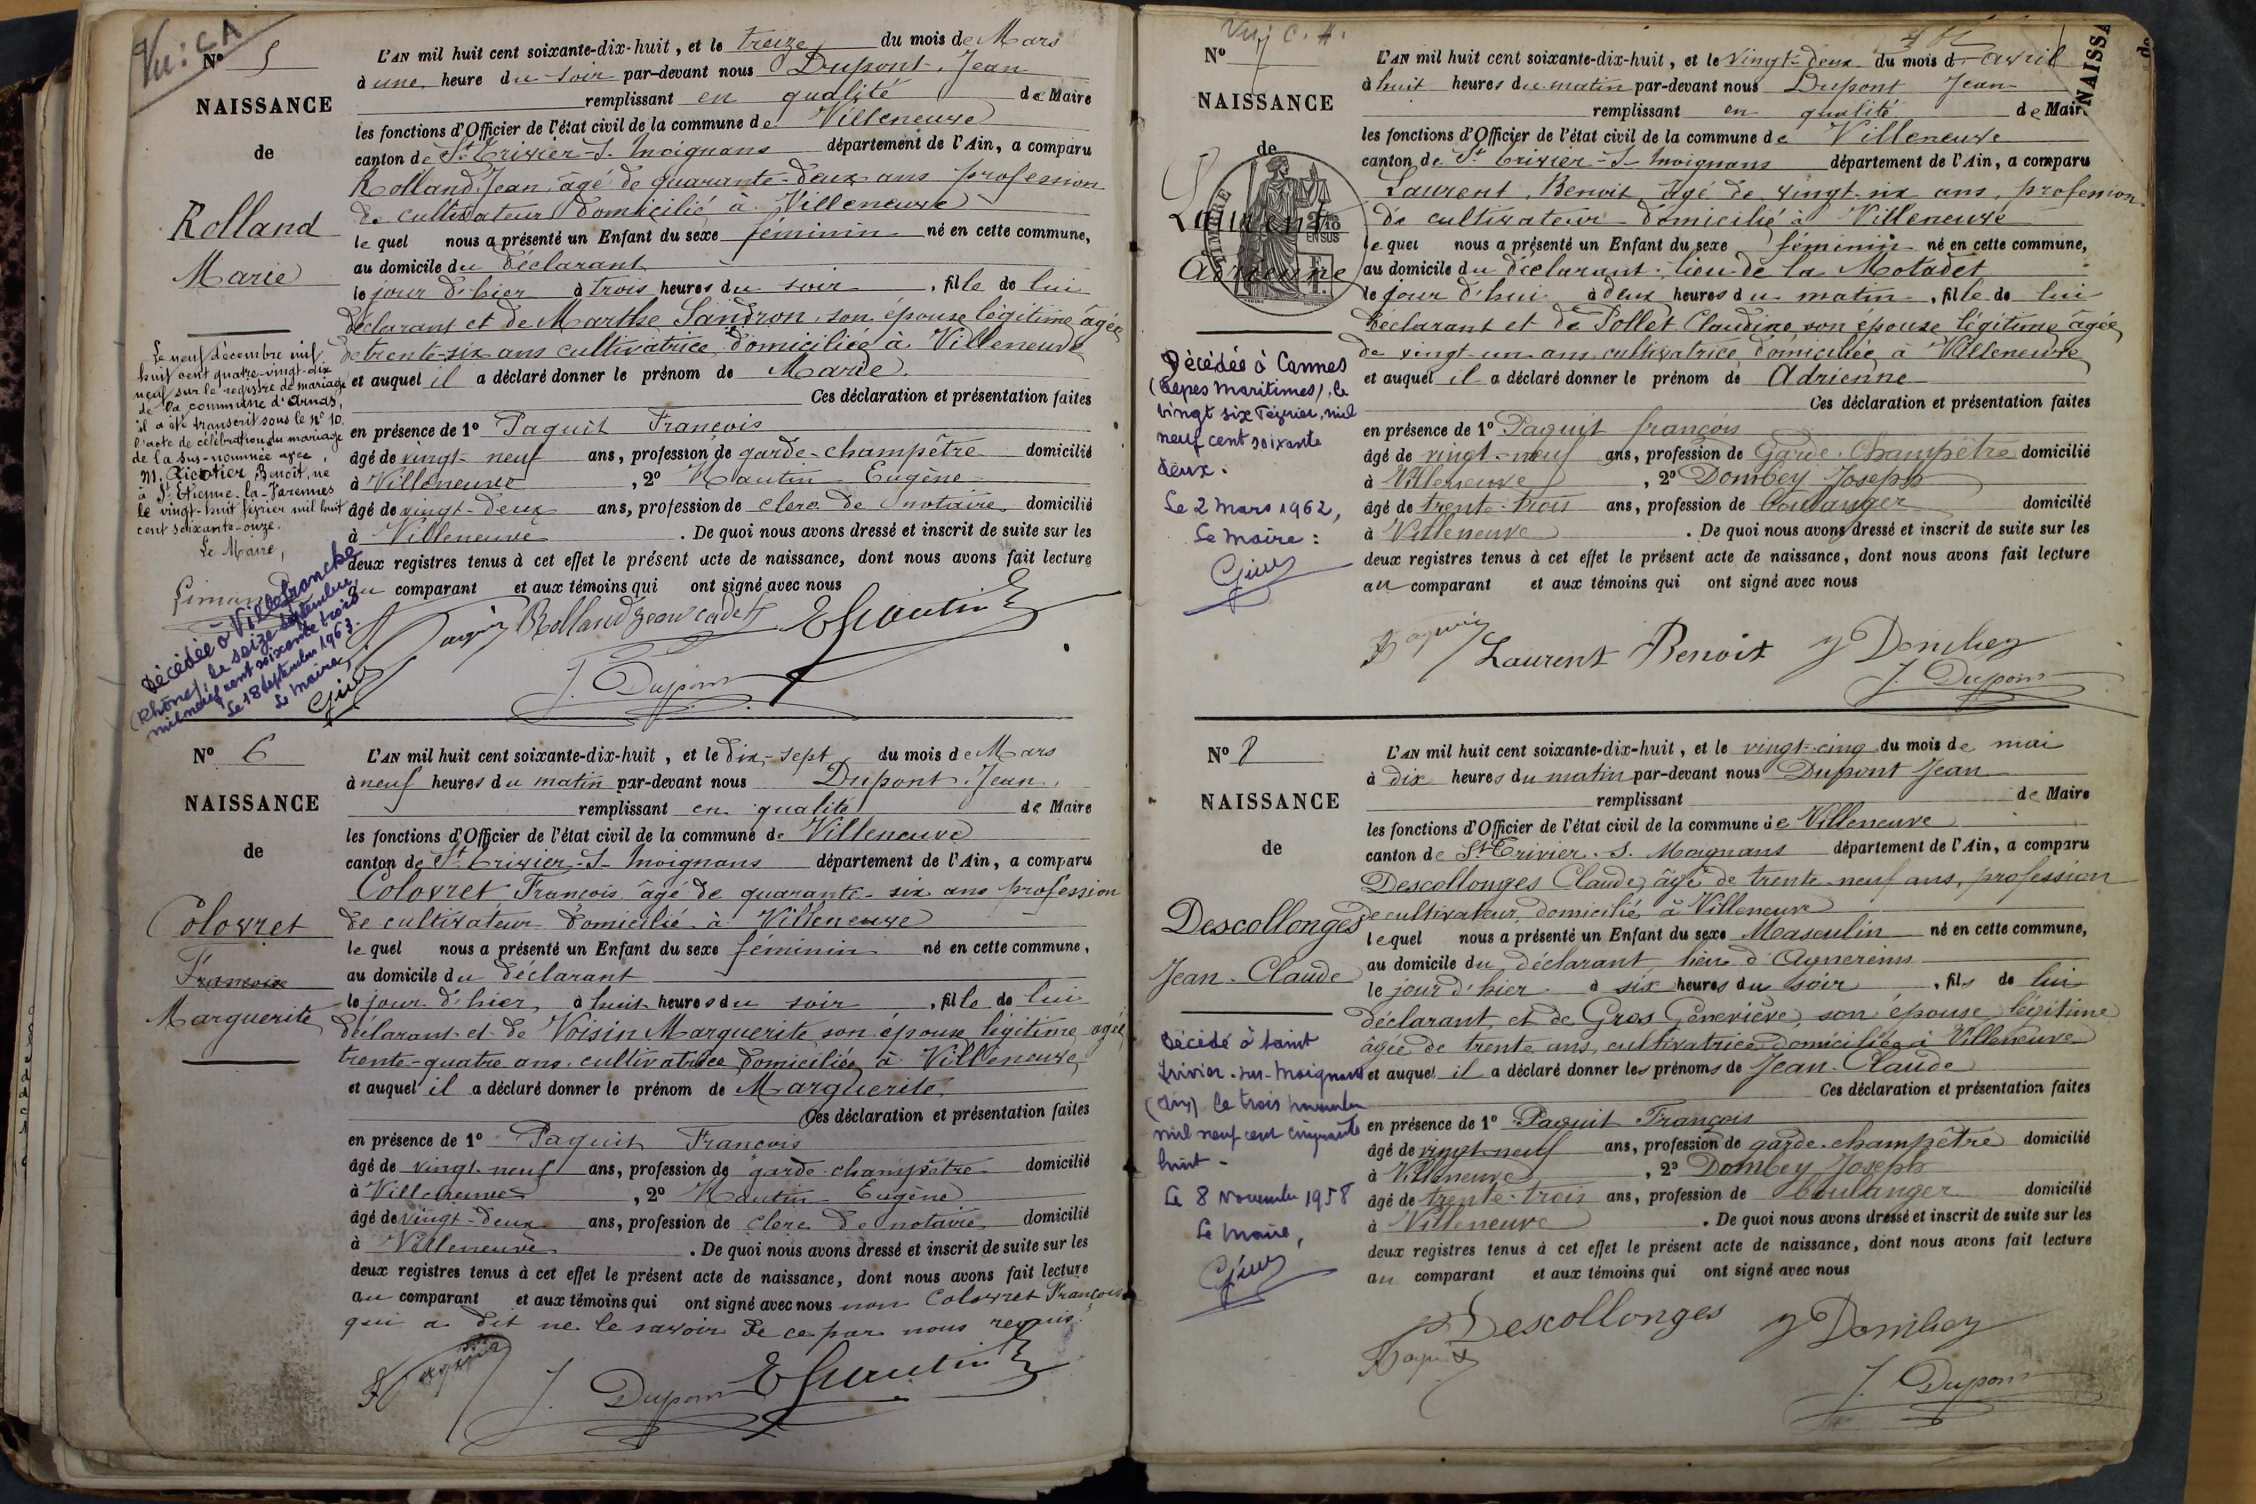 Vu: CA
Nº 5
NAISSANCE
de
Rolland
Marie
L'AN mil huit cent soixante-dix-huit, et le treize du mois de Mars
à une heure du soir par-devant nous Dupont Jean
remplissant en qualité de Maire
les fonctions d'Officier de l'état civil de la commune de Villeneuve
canton de St Trivier-S. Moignans département de l'Ain, a comparu
Rolland Jean âgé de quarante-deux ans profession
de cultivateur domicilié à Villeneuve
le quel nous a présenté un Enfant du sexe féminin né en cette commune,
au domicile du déclarant
le jour d'hier à trois heures du soir, fille de lui
déclarant et de Marthe Sandron, son épouse légitime âgée
de trente-six ans cultivatrice domiciliée à Villeneuve
et auquel il a déclaré donner le prénom de Marie.
Ces déclaration et présentation faites
en présence de 1º Paquit François
âgé de vingt-neuf ans, profession de garde-champêtre domicilié
à Villeneuve, 2º Hautin Eugène
âgé de vingt-deux ans, profession de clerc de notaire domicilié
à Villeneuve. De quoi nous avons dressé et inscrit de suite sur les
deux registres tenus à cet effet le présent acte de naissance, dont nous avons fait lecture
au comparant et aux témoins qui ont signé avec nous
Paquit Rolland Jean cadet E Hautin
J. Dupont
Le neuf décembre mil
huit cent quatre-vingt-dix
neuf sur le registre de mariage
de la commune d'Arnas,
il a été transcrit sous le nº 10
l'acte de célébration du mariage
de la sus-nommée avec
M. Benoit, né
à St Etienne-la-Varennes
le vingt-huit février mil huit
cent soixante-onze.
Le Maire,
Décédée à Villefranche
(Rhône), le seize septembre
mil neuf cent soixante trois
Le 18 septembre 1963.
Le Maire,
Nº 6
NAISSANCE
de
Colovret
Françoise
Marguerite
L'AN mil huit cent soixante-dix-huit, et le dix-sept du mois de Mars
à neuf heures du matin par-devant nous Dupont Jean.
remplissant en qualité de Maire
les fonctions d'Officier de l'état civil de la commune de Villeneuve
canton de St Trivier-S-Moignans département de l'Ain, a comparu
Colovret François âgé de quarante-six ans profession
de cultivateur domicilié à Villeneuve
le quel nous a présenté un Enfant du sexe féminin né en cette commune,
au domicile du déclarant
le jour d'hier à huit heures du soir, fille de lui
déclarant et de Voisin Marguerite son épouse légitime âgée
trente-quatre ans cultivatrice domiciliée à Villeneuve
et auquel il a déclaré donner le prénom de Marguerite.
Ces déclaration et présentation faites
en présence de 1º Paquit François
âgé de vingt-neuf ans, profession de garde-champêtre domicilié
à Villeneuve, 2º Hautin Eugène
âgé de vingt-deux ans, profession de clerc de notaire domicilié
à Villeneuve. De quoi nous avons dressé et inscrit de suite sur les
deux registres tenus à cet effet le présent acte de naissance, dont nous avons fait lecture
au comparant et aux témoins qui ont signé avec nous non Colovret François
qui a dit ne le savoir de ce par nous requis.
Paquit J. Dupont E Hautin
Vu, C. A.
Nº 7
NAISSANCE
de
Laurent
Adrienne
L'AN mil huit cent soixante-dix-huit, et le vingt-deux du mois d'avril
à huit heures du matin par-devant nous Dupont Jean
remplissant en qualité de Maire
les fonctions d'Officier de l'état civil de la commune de Villeneuve
canton de St Trivier-S-Moignans département de l'Ain, a comparu
Laurent Benoit âgé de vingt-six ans, profession
de cultivateur domicilié à Villeneuve
le quel nous a présenté un Enfant du sexe féminin né en cette commune,
au domicile du déclarant: lieu de la Motadet
le jour d'hui à deux heures du matin, fille de lui
déclarant et de Pollet Claudine son épouse légitime âgée
de vingt-un ans cultivatrice domiciliée à Villeneuve
et auquel il a déclaré donner le prénom de Adrienne
Ces déclaration et présentation faites
en présence de 1º Paquit françois
âgé de vingt-neuf ans, profession de Garde-Champêtre domicilié
à Villeneuve, 2º Dombey Joseph
âgé de trente-trois ans, profession de boulanger domicilié
à Villeneuve. De quoi nous avons dressé et inscrit de suite sur les
deux registres tenus à cet effet le présent acte de naissance, dont nous avons fait lecture
au comparant et aux témoins qui ont signé avec nous
Paquit Laurent Benoit J Dombey
J. Dupont
Décédée à Cannes
(Alpes Maritimes), le
vingt six Février, mil
neuf cent soixante
deux.
Le 2 Mars 1962,
Le Maire:
NAISSA
de
Nº 8
NAISSANCE
de
Descollonges
Jean-Claude
L'AN mil huit cent soixante-dix-huit, et le vingt-cinq du mois de mai
à dix heures du matin par-devant nous Dupont Jean
remplissant de Maire
les fonctions d'Officier de l'état civil de la commune de Villeneuve
canton de St Trivier. S. Moignans département de l'Ain, a comparu
Descollonges Claude, âgé de trente-neuf ans, profession
de cultivateur domicilié à Villeneuve
lequel nous a présenté un Enfant du sexe Masculin né en cette commune,
au domicile du déclarant, lieu d'Agnereins
le jour d'hier à six heures du soir, fils de lui
déclarant, et de Gros Geneviève, son épouse légitime
âgée de trente ans, cultivatrice domiciliée à Villeneuve
et auquel il a déclaré donner les prénoms de Jean-Claude
Ces déclaration et présentation faites
en présence de 1º Paquit François
âgé de vingt-neuf ans, profession de garde-champêtre domicilié
à Villeneuve, 2º Dombey Joseph
âgé de trente-trois ans, profession de boulanger domicilié
à Villeneuve. De quoi nous avons dressé et inscrit de suite sur les
deux registres tenus à cet effet le présent acte de naissance, dont nous avons fait lecture
au comparant et aux témoins qui ont signé avec nous
Descollonges J Dombey
Paquit
J. Dupont
Décédé à Saint
Trivier-sur-Moignans
(Ain) le trois novembre
mil neuf cent cinquante
huit-
Le 8 Novembre 1958
Le Maire,